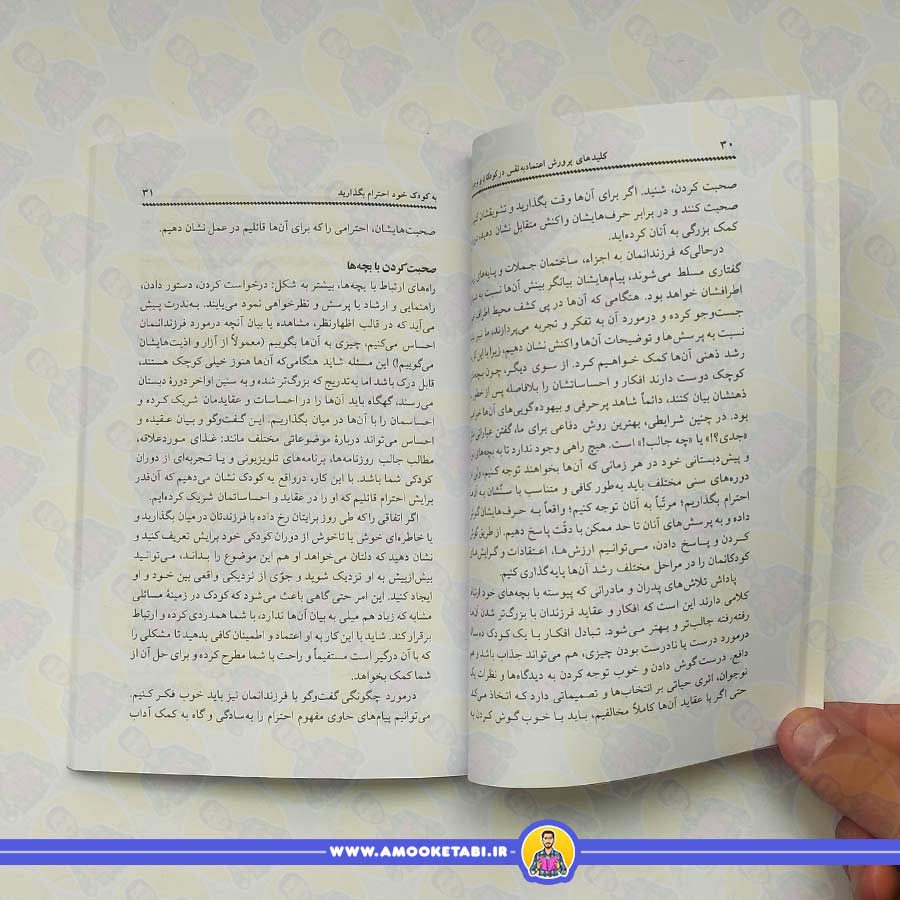 ۳۰
کلیدهای پرورش اعتمادبه‌نفس در کودکان و
صحبت کردن، شنید. اگر برای آن‌ها وقت بگذارید و تشویقشان
صحبت کنند و در برابر حرف‌هایشان واکنش متقابل نشان دهید،
کمک بزرگی به آنان کرده‌اید.
درحالی‌که فرزندانمان به اجزاء، ساختمان جملات و پایه‌های
گفتاری مسلط می‌شوند، پیام‌هایشان بیانگر بینش آن‌ها نسبت به
اطرافشان خواهد بود. هنگامی که آن‌ها در پی کشف محیط اطراف
جست‌وجو کرده و درمورد آن به تفکر و تجربه می‌پردازند، ما نیز
نسبت به پرسش‌ها و توضیحات آن‌ها واکنش نشان دهیم، زیرا با این
رشد ذهنی آن‌ها کمک خواهیم کرد. از سوی دیگر، چون
کوچک دوست دارند افکار و احساساتشان را بلافاصله پس از
ذهنشان بیان کنند، دائماً شاهد پرحرفی و بیهوده‌گویی‌های آن‌ها
بود. در چنین شرایطی، بهترین روش دفاعی برای ما، گفتن عباراتی
«جدی؟!» یا «چه جالب!» است. هیچ راهی وجود ندارد تا به بچه‌های
و پیش‌دبستانی خود در هر زمانی که آن‌ها بخواهند توجه کنیم،
دوره‌های سنی مختلف باید به‌طور کافی و متناسب با سنّشان به
احترام بگذاریم؛ مرتّباً به آنان توجه کنیم؛ واقعاً به حرف‌هایشان
داده و به پرسش‌های آنان تا حد ممکن با دقّت پاسخ دهیم. از طریق
کردن و پاسخ دادن، می‌توانیم ارزش‌ها، اعتقادات و گرایش‌های
کودکانمان را در مراحل مختلف رشد آن‌ها پایه‌گذاری کنیم.
پاداش تلاش‌های پدران و مادرانی که پیوسته با بچه‌های خود
کلامی دارند این است که افکار و عقاید فرزندان با بزرگ‌تر شدن
رفته‌رفته جالب‌تر و بهتر می‌شود. تبادل افکار با یک کودک ده
درمورد درست یا نادرست بودن چیزی، هم می‌تواند جذاب باشد و
دافع. درست گوش دادن و خوب توجه کردن به دیدگاه‌ها و نظرات
نوجوان، اثری حیاتی بر انتخاب‌ها و تصمیماتی دارد که اتخاذ
حتی اگر با عقاید آن‌ها کاملاً مخالفیم، باید با خوب گوش کردن به
به کودک خود احترام بگذارید
۳۱
صحبت‌هایشان، احترامی را که برای آن‌ها قائلیم در عمل نشان دهیم.
صحبت‌کردن با بچه‌ها
راه‌های ارتباط با بچه‌ها، بیشتر به شکل: درخواست کردن، دستور دادن،
راهنمایی و ارشاد یا پرسش و نظرخواهی نمود می‌یابند. به‌ندرت پیش
می‌آید که در قالب اظهارنظر، مشاهده یا بیان آنچه درمورد فرزندانمان
احساس می‌کنیم، چیزی به آن‌ها بگوییم (معمولاً از آزار و اذیت‌هایشان
می‌گوییم!) این مسئله شاید هنگامی‌که آن‌ها هنوز خیلی کوچک هستند،
قابل درک باشد اما به‌تدریج که بزرگ‌تر شده و به سنین اواخر دورهٔ دبستان
می‌رسند، گهگاه باید آن‌ها را در احساسات و عقایدمان شریک کرده و
احساسمان را با آن‌ها در میان بگذاریم. این گفت‌وگو و بیان عقیده و
احساس می‌تواند دربارهٔ موضوعاتی مختلف مانند: غذای موردعلاقه،
مطالب جالب روزنامه‌ها، برنامه‌های تلویزیونی و یا تجربه‌ای از دوران
کودکی شما باشد. با این کار، درواقع به کودک نشان می‌دهیم که آن‌قدر
برایش احترام قائلیم که او را در عقاید و احساساتمان شریک کرده‌ایم.
اگر اتفاقی را که طی روز برایتان رخ داده با فرزندتان در میان بگذارید و
یا خاطره‌ای خوش یا ناخوش از دوران کودکی خود برایش تعریف کنید و
نشان دهید که دلتان می‌خواهد او هم این موضوع را بداند، می‌توانید
بیش‌ازپیش به او نزدیک شوید و جوّی از نزدیکی واقعی بین خود و او
ایجاد کنید. این امر حتی گاهی باعث می‌شود که کودک در زمینهٔ مسائلی
مشابه که زیاد هم میلی به بیان آن‌ها ندارد، با شما همدردی کرده و ارتباط
برقرار کند. شاید با این کار به او اعتماد و اطمینان کافی بدهید تا مشکلی را
که با آن درگیر است مستقیماً و راحت با شما مطرح کرده و برای حل آن از
شما کمک بخواهد.
درمورد چگونگی گفت‌وگو با فرزندانمان نیز باید خوب فکر کنیم.
می‌توانیم پیام‌های حاوی مفهوم احترام را به‌سادگی و گاه به کمک آداب
WWW.AMOOKETABI.IR